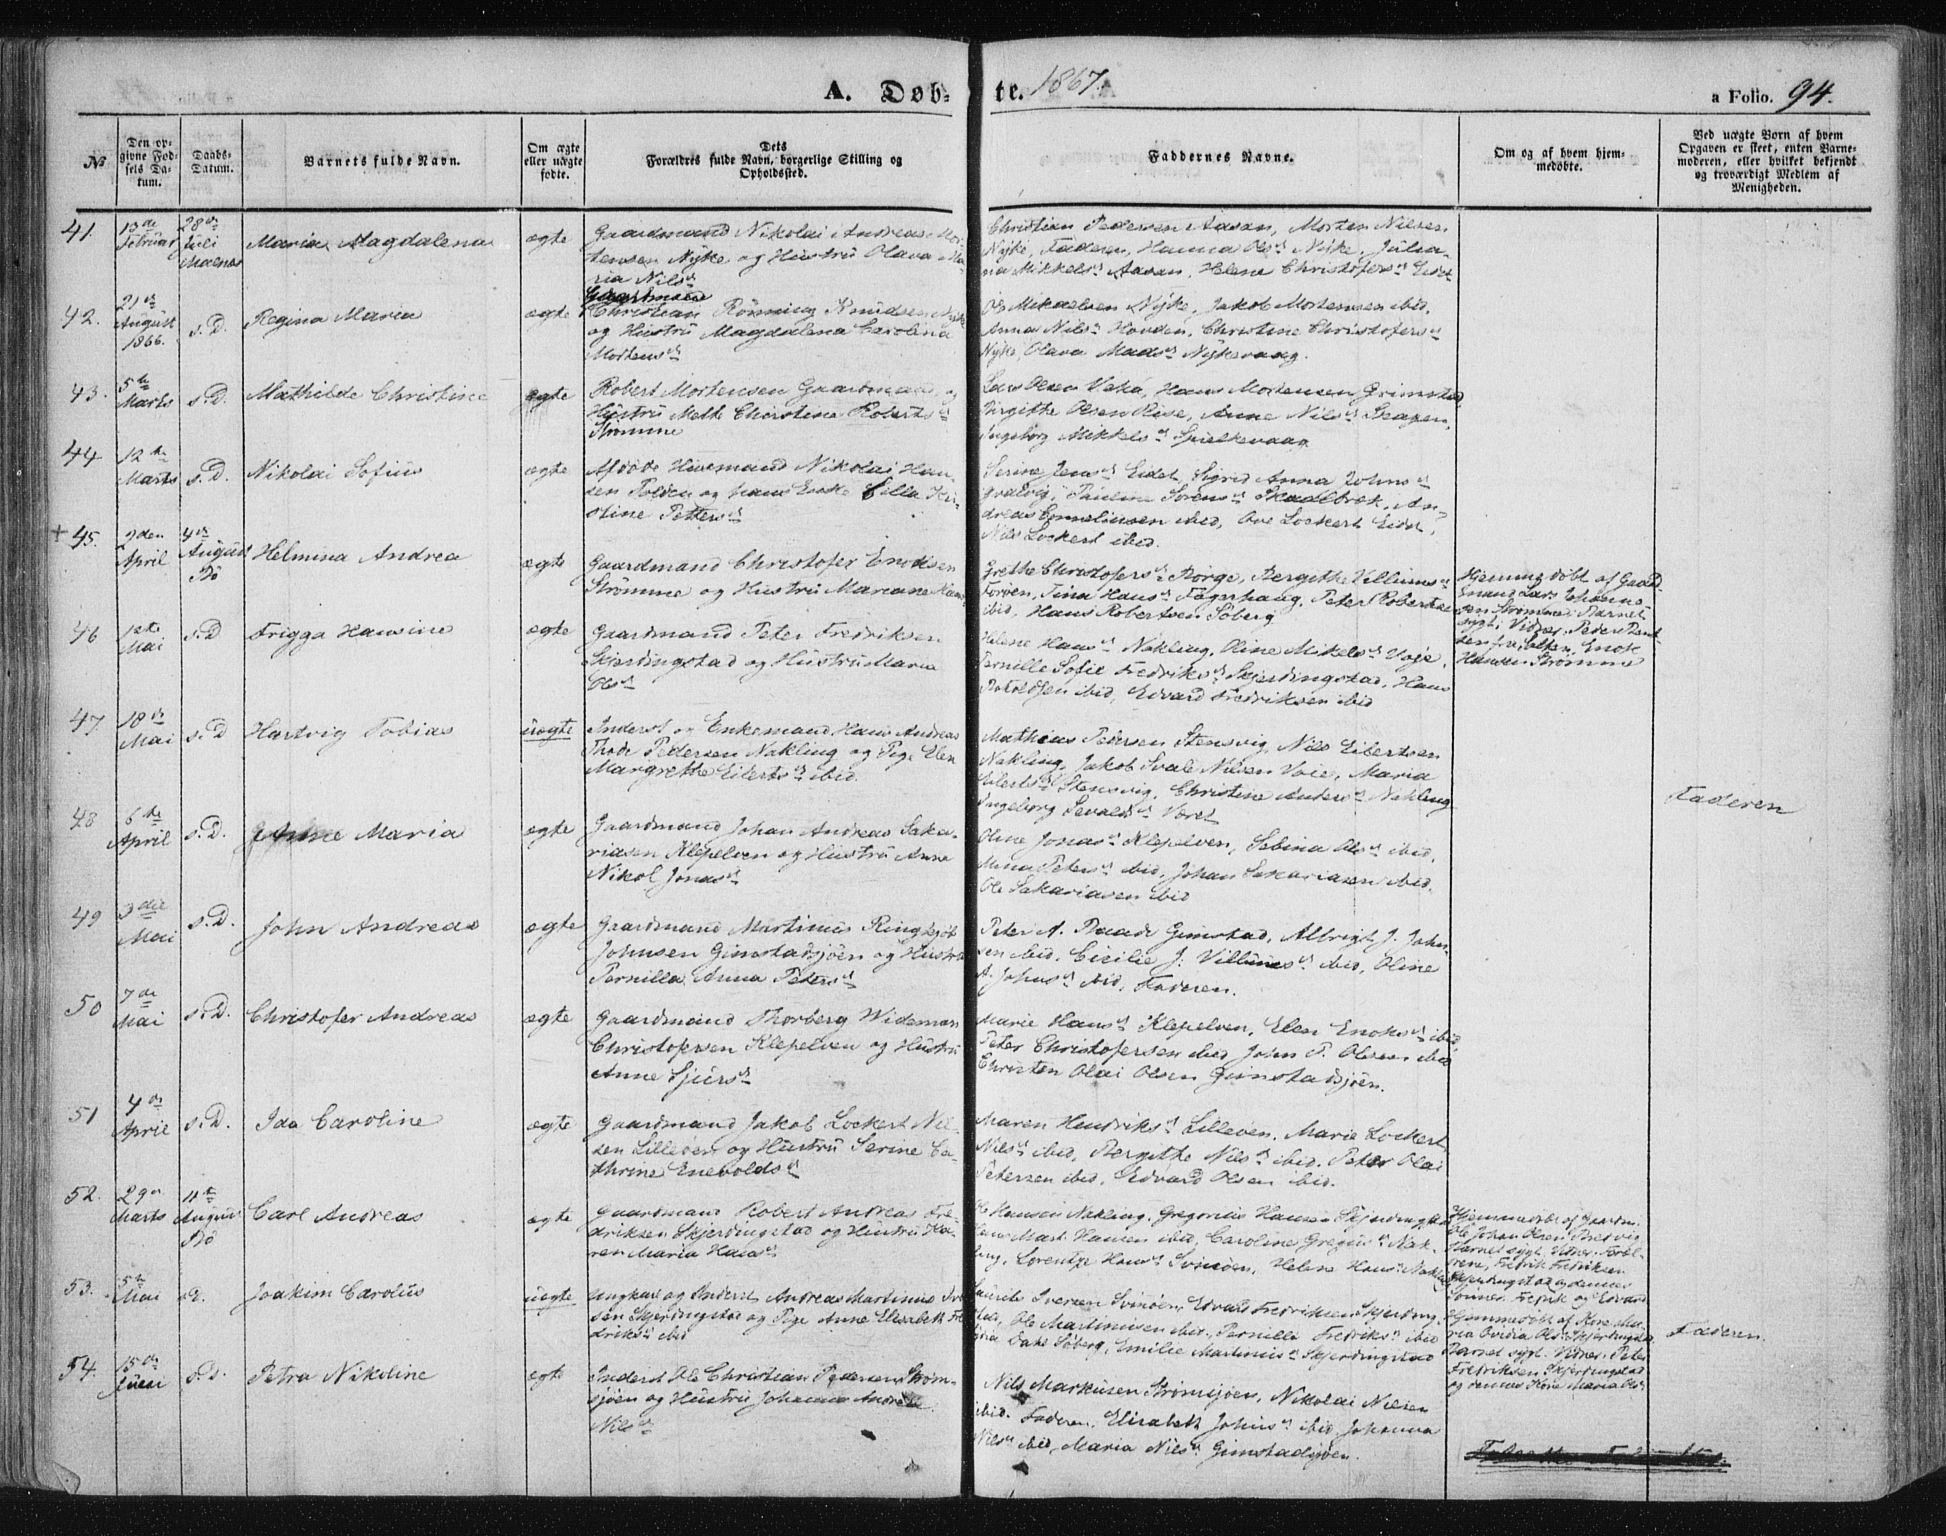 A. Døb-
te. 1867.
a Folio. 94.
No
Den op-
givne Fød-
sels Da-
tum.
Daabs-
Datum.
Barnets fulde Navn.
Om ægte
eller uægte
fødte.
Dets
Forældres fulde Navn, borgerlige Stilling og
Opholdssted.
Faddernes Navne.
Om og af hvem hjem-
medøbte.
Ved uægte Børn af hvem
Opgaven er skeet, enten Barne-
moderen, eller hvilket bekjendt
og troværdigt Medlem af
Menigheden.
41.
13de
Februar
28de
Juli
Malnes
Maria Magdalena
ægte
Gaardmand Nikolai Andreas Mor-
tensen Nyke og Hustru Olava Ma-
ria Nilsd
Christian Pedersen Aasan, Morten Nilsen
Nyke, Faderen, Hanna Olsd Nyke, Julia-
na Mikkelsd Aasan, Helene Christofersd Eidet
42.
21de
August
1866.
s.D.
Regina Maria
ægte
Gaardmand
Christian Rönning Knudsen Nyke
og Hustru Magdalena Carolina
Mortensd
Ole Mikaelsen Nyke, Jakob Mortensen ibid,
Anna Nilsd Hovden, Christine Christofersd
Nyke, Olava Madsd Nykevaag.
43.
5te
Marts
s.D.
Mathilde Christine
ægte
Robert Mortensen Gaardmand, og
Hustru Mette Christina Robertsd
Strömme
Lars Olsen Vekå, Hans Mortensen Grimstad,
Birgithe Olsen Rise, Anne Nilsd Skagen,
Ingeborg Mikkelsd Spielkevaag
44
12te
Marts
s.D.
Nikolai Sofius
ægte
Afdöde Huusmand Nikolai Han-
sen Polden og hans Enke Cilla Kri-
stine Pettersd
Serine Jensd Eidet, Sigrid Anna Johnsd
Pauline Sörensd Skadebrok, An-
dreas Corneliussen ibid, Ove Lockert Eidet,
Nils Lockert ibid.
+ 45.
2den
April
4de
August
Bö
Helmina Andrea
ægte
Gaardmand Christofer Enoksen
Strömme og Hustru Mariane Hansd
Grethe Christofersd Rörge, Bergithe Villumsd
Föröen, Tina Hansd Fagerhaug, Peter Robertsen
ibid, Hans Robertsen Söberg
Hjemmedöbt af Gaard-
mand Lars Johanne-
sen Strömme. Barnet
sygt. Vidner, Peder Bent-
sen Enok
Hansen Strömme
46
1ste
Mai
s.D
Frigga Hansine
ægte
Gaardmand Peter Fredriksen
Skjerdingstad og Hustru Maria
Olsd
Helene Hansd Nakling, Oline Mikelsd Voje,
Pernille Sofie Fredriksd Skjerdingstad, Hans
ibid, Edvard Fredriksen ibid
47.
18de
Mai
s.D
Hartvig Tobias
uægte
Inderst og Enkemand Hans Andreas
Thode Pedersen Nakling og Pige Elen
Margrethe Eilertsd ibid.
Mathias Pedersen Stensvig, Nils Eilertsen
Nakling, Jakob Svale Nilsen Voie, Maria
Eilertsd Stensvig, Christine Andersd Nakling
Ingeborg Sevaldsd Voret
Faderen
48
6te
April
s.D.
Anne Maria
ægte
Gaardmand Johan Andreas Saka-
riasen Klepelven og Hustru Anne
Nikol Jonasd
Oline Jonasd Klepelven, Sebina Olsd ibid,
Mina Petersd ibid, Johan Sakariasen ibid.
Ole Sakariasen ibid
49
3die
Mai
s.D.
John Andreas
ægte
Gaardmand Martinus Ringkjöb
Johnsen Gimstadsjöen og Hustru
Pernilla Anna Petersd
Peter A. Baade Gimstad, Albrigt J. John-
sen ibid, Cicilie J. Villumsd ibid, Oline
A. Johnsd ibid, Faderen.
50
7de
Mai
s.D.
Christofer Andreas
ægte
Gaardmand Thorberg Wideman
Christofersen Klepelven og Hustru
Anne Sjursd
Marie Hansd Klepelven, Elen Enoksd ibid
Peter Christofersen ibid John P. Olsen ibid
Christen Olai Olsen Gimstadsjöen.
51
4de
April
s.D.
Ida Caroline
ægte
Gaardmand Jakob Lockert Nil-
sen Lilleöen og Hustru Serine Ca-
thrine Enevoldsd
Maren Hendriksd Lilleöen, Marie Lockert
Nilsd ibid, Bergithe Nilsd ibid. Peter Olai
Petersen ibid, Edvard Olsen ibid.
52.
29de
Marts
11te
August
Bö
Carl Andreas
ægte
Gaardmand Robert Andreas Fre-
driksen Skjerdingstad og Hustru Ka-
ren Maria Hansd
Ole Hansen Nakling, Gregorius Hansen Skjerdingstad
Hans Mart. Hansen ibid, Caroline Gregusd Nak-
ling, Lorentze Hansd Svinöen, Helene Hansd Nakling
Hjemmedöbt af Gaardm.
Ole Johan Olsen Bredvig
Barnet sygt. Vidner, Foræl-
drene, Fredrik Fredriksen
Skjerdingstad og dennes
Sönner Fredrik og Edvard
53.
5te
Mai
s.D.
Joakim Carolus
uægte
Ungkarl og Inderst Andreas Martinus Iver-
sen Skjerdingstad og Pige Anne Elisabeth Fre-
driksd ibid
Laurits Iversen Svinöen, Edvard Fredriksen Skjerding-
stad, Ole Martinusen ibid, Pernille Fredriksd ibid
Dahl Söberg, Emilie Martinusd Skjerdingstad
Hjemmedöbt af Kone Ma-
ria Ovidia Olsd Skjerdingstad.
Barnet sygt. Vidner Peter
Fredriksen Skjerdingstad
og dennes Kone Maria Olsd
Faderen.
54.
15de
Juni
s.D.
Petra Nikoline
ægte
Inderst Ole Christian Pedersen Ström-
sjöen og Hustru Johanna Andrea
Nilsd
Nils Markusen Strömsjöen, Nikolai Nilsen
ibid. Faderen, Elisabeth Johnsd ibid Johanna
Nilsd ibid, Maria Nilsd Gimstadsjöen.